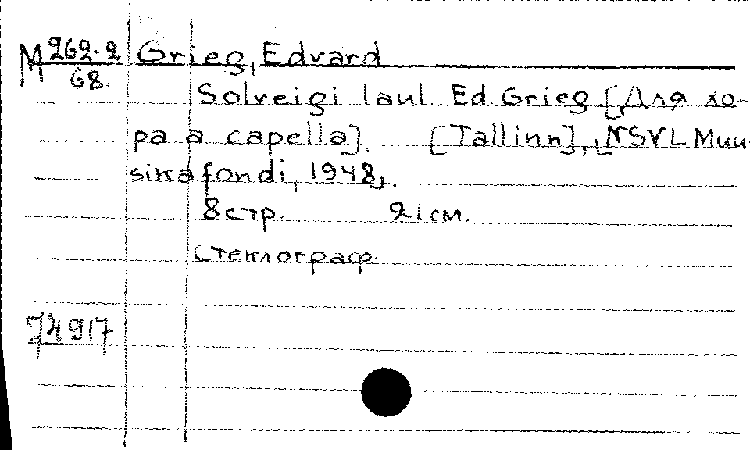 М 262-2/68. Grieg, Edvard
Solveigi laul. Ed. Grieg [Для хо-
ра a capella]. [Tallinn], NSVL Muu-
sikafondi, 1948.
8 стр. 21 см.
Стеклограф.
74917